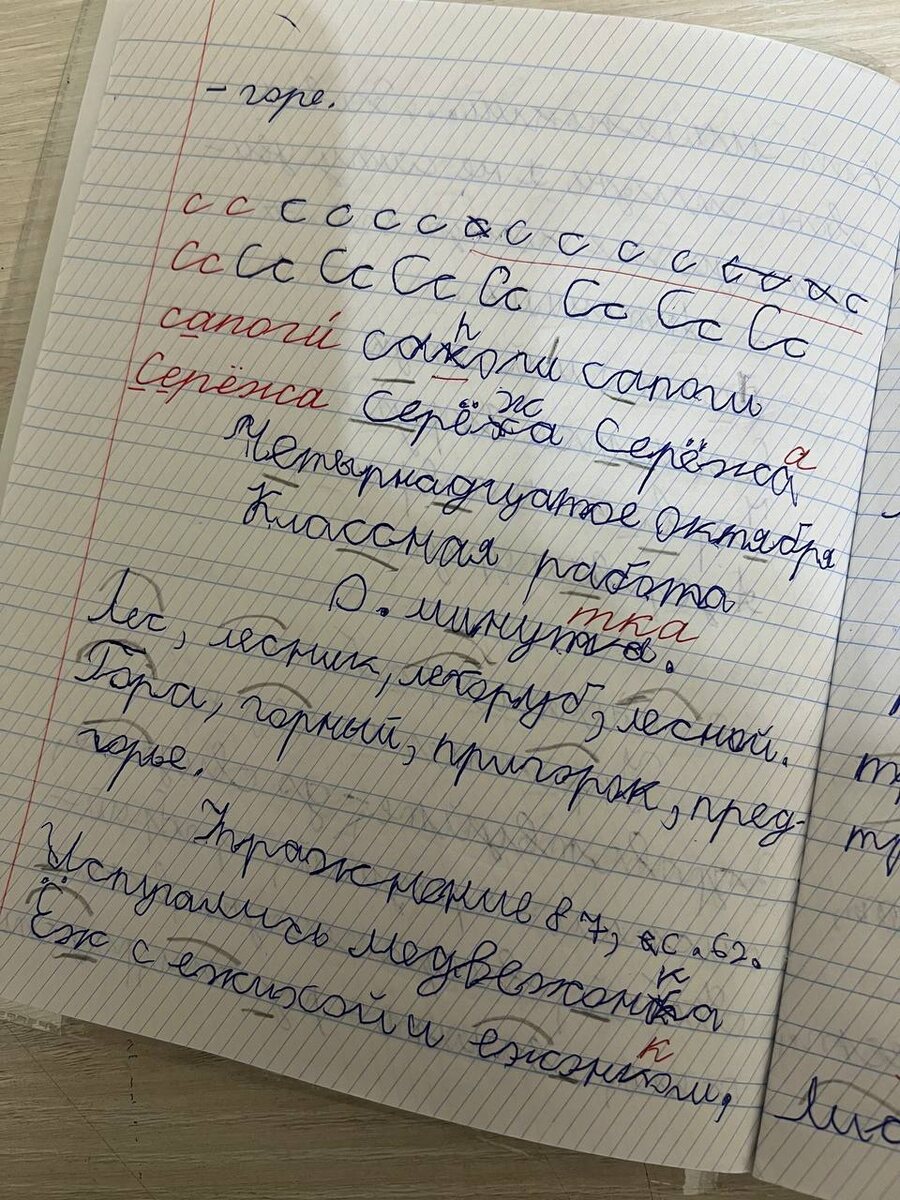 - горе.
с с с с с с с с с с с с
Сс Сс Сс Сс Сс Сс Сс Сс
сапоги сапоги сапоги
Серёжа Серёжа Серёжа
Четырнадцатое октября
Классная работа
О. минутка.
Лес, лесник, лесоруб, лесной.
Гора, горный, пригорок, пред-
горье.
Упражнение 87, с. 62.
Испугались медвежонка
Ёж с ежихой и ежонком,